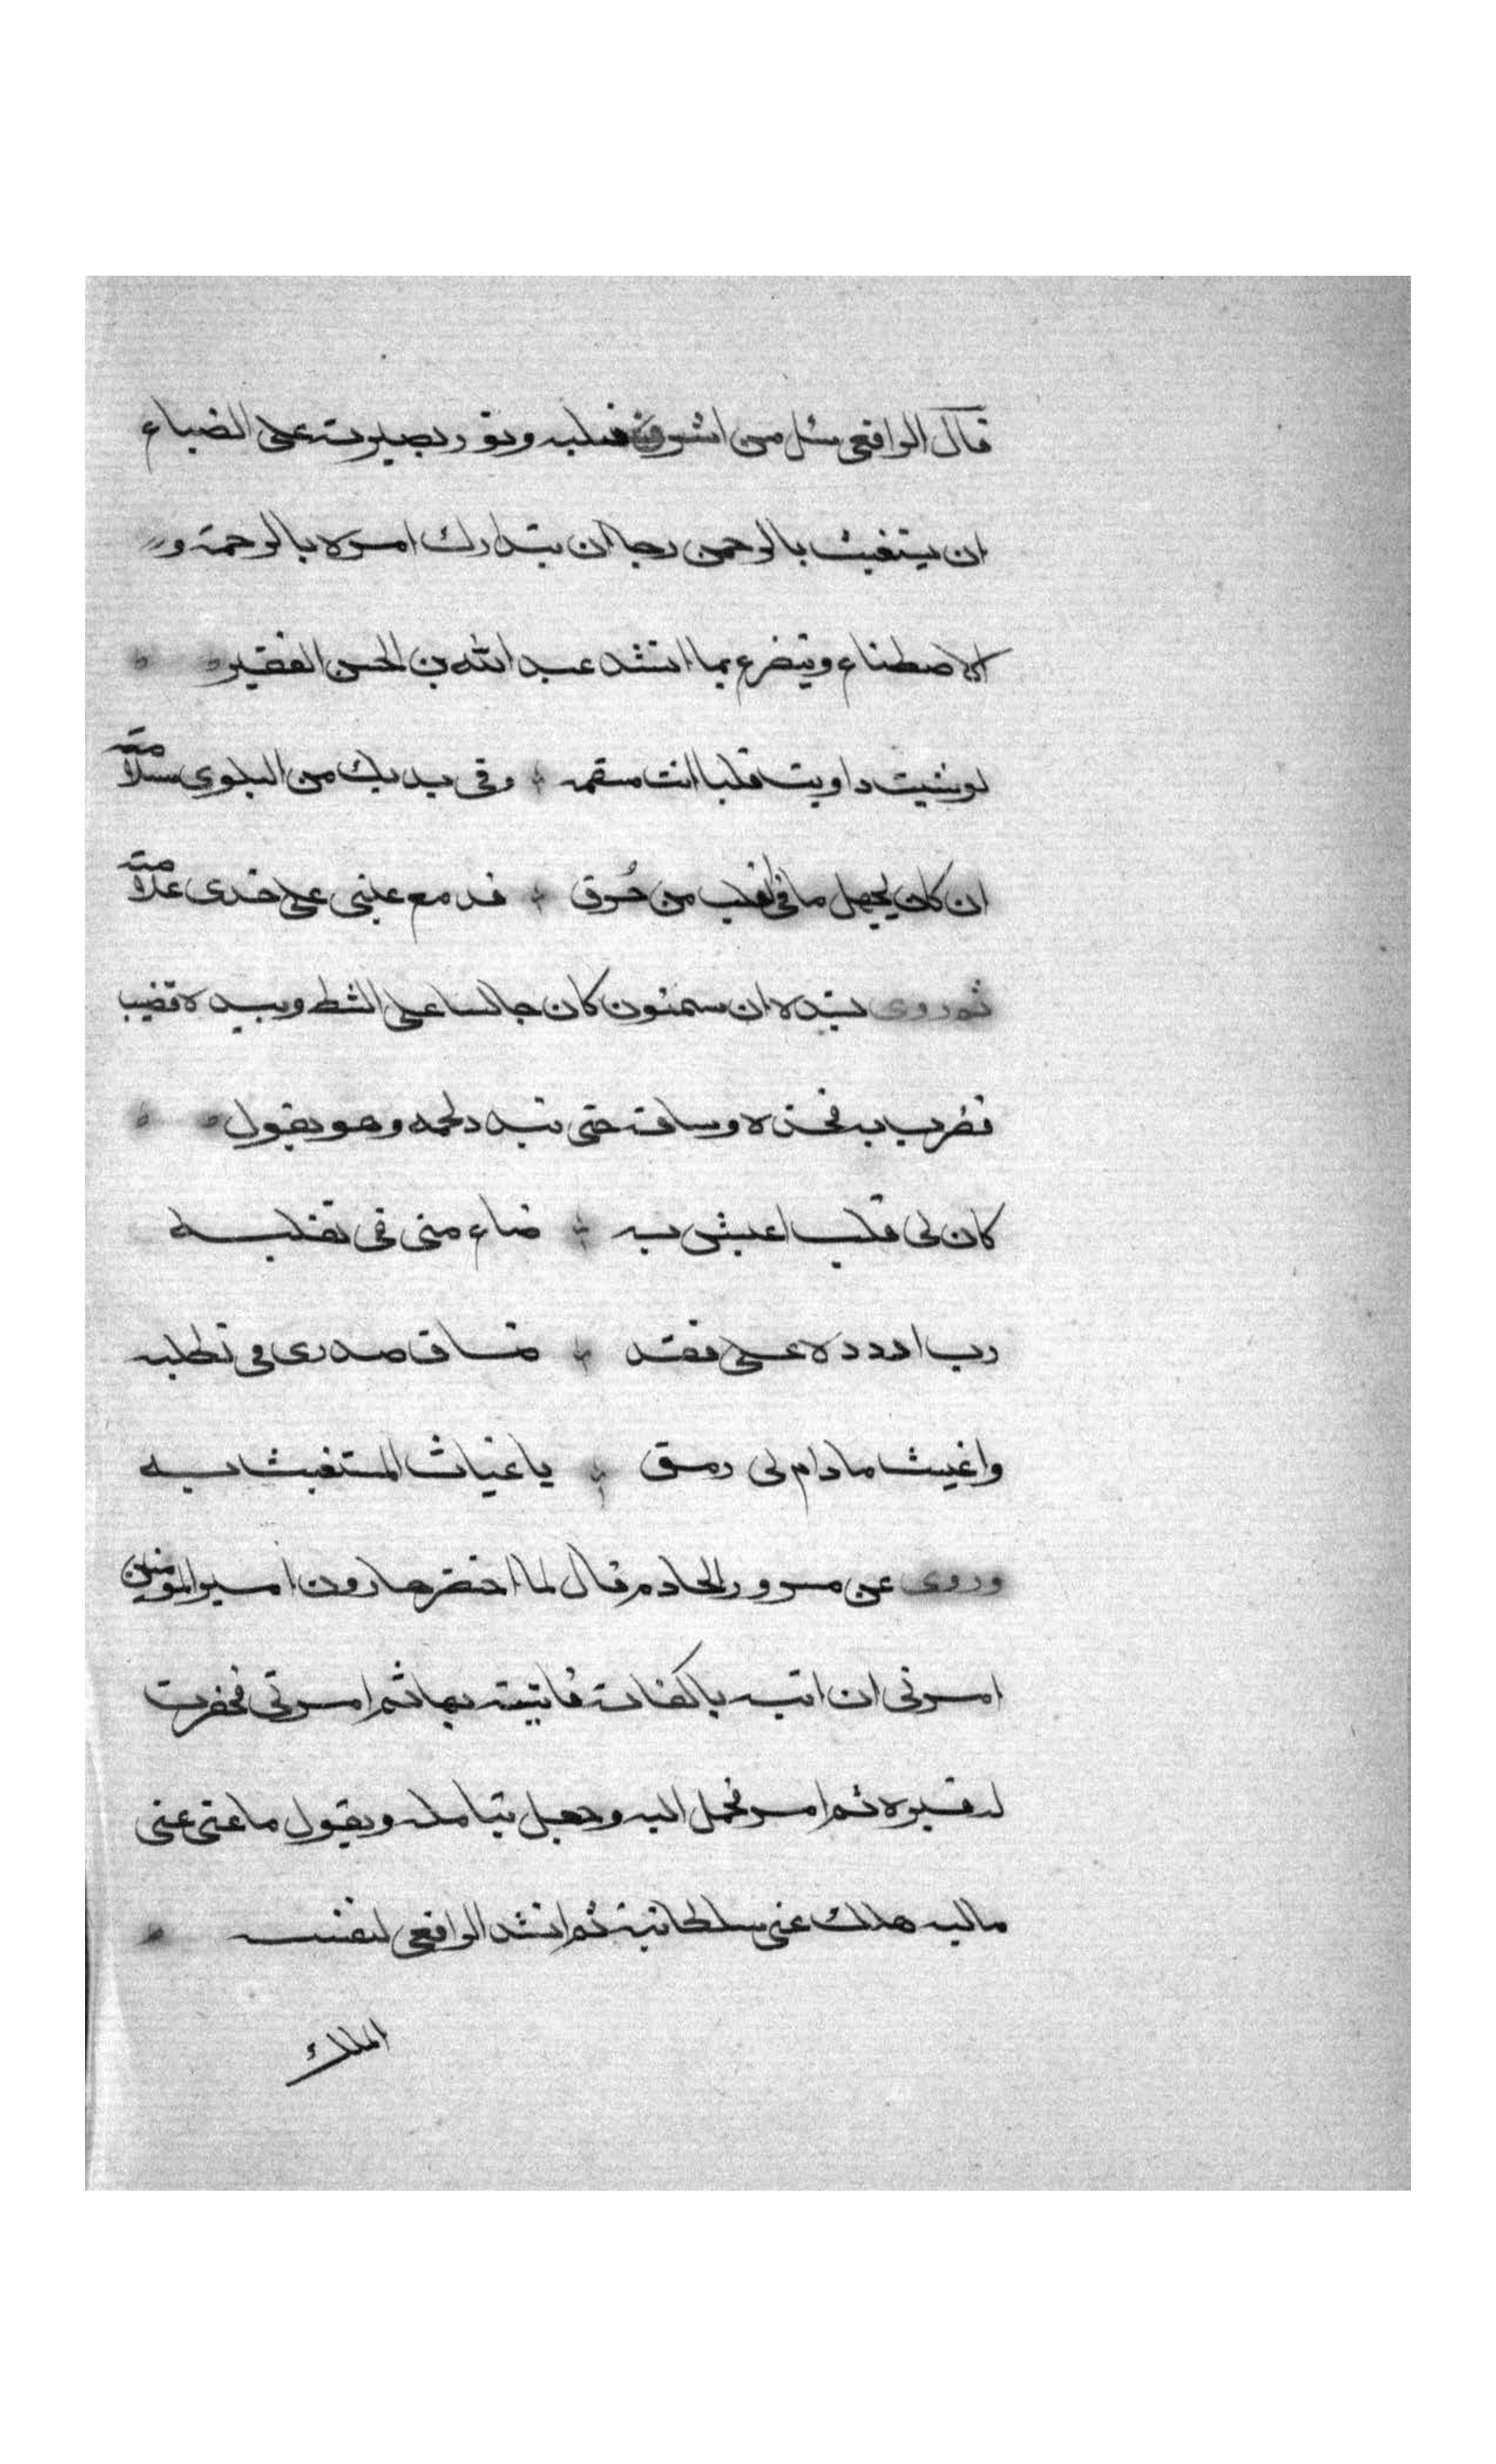 قال الرافعى مثل من اشرف قلبه ونور بصيرته على الضياع
ان يستغيث بالرحمن رجا ان يتدارك امره بالرحمة و
الاصطناع ويتضرع بما انشد عبد الله بن الحسن الفقير
لو شيت داويت قلبا انت مسقمه وفى يديك من البلوى سلامته
ان كان يجهل ما فى القلب من حرق فدمع عينى على خدى علامته
ثم روى بسنده ان سمنون كان جالسا على الشط وبيده قضيب
يضرب به فخذه وساقه حتى تبدد لحمه وهو يقول
كان لى قلب اعيش به ضاع منى فى تقلبه
رب اردده على فقد ضاق صدرى فى تطلبه
واغيث ما دام لى رمق يا غياث المستغيث به
وروى عن مسرور الخادم قال لما احتضر هارون امير المومنين
امرنى ان اتيه باكفانه فاتيته بها ثم امرنى فحفرت
له قبره ثم امر فحمل اليه وجعل يتامله ويقول ما اغنى عنى
ماليه هلك عنى سلطانيه ثم انشد الرافعى لنفسه
الملك